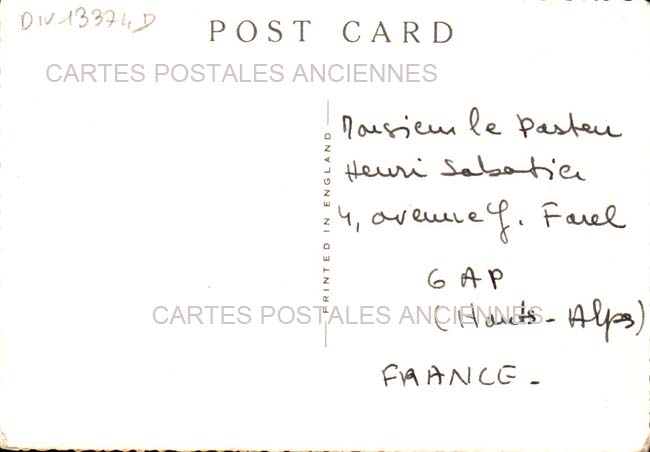 DIV13374D
POST CARD
CARTES POSTALES ANCIENNES
PRINTED IN ENGLAND
Monsieur le Pasteur
Henri Sabatier
4, avenue G. Farel
GAP
CARTES POSTALES ANCIENNES
(Hautes-Alpes)
FRANCE-